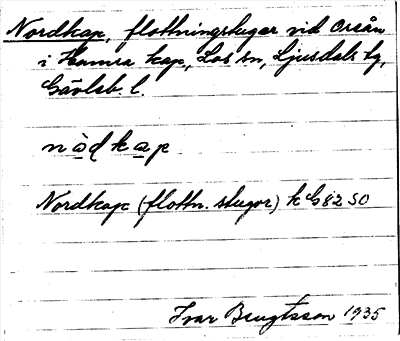 Nordkap, flottningstugor vid Orsån
i Hamra kap, Los sn, Ljusdals tg,
Gävleb. l.
nàdkap
Nordkap (flottn. stugor) k G82 SO
Ivar Bengtsson 1935